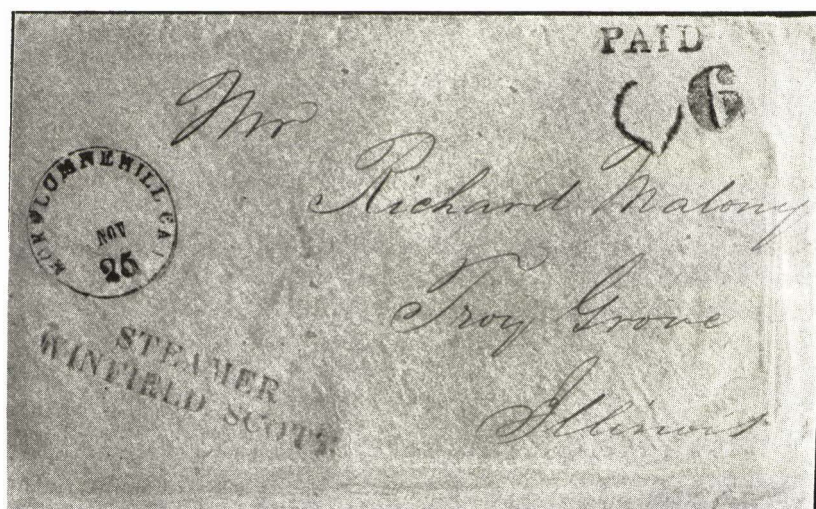 PAID
6
Mr
Richard Malony
Troy Grove
Illinois
MOKELUMNE HILL CAL
NOV
25
STEAMER
WINFIELD SCOTT